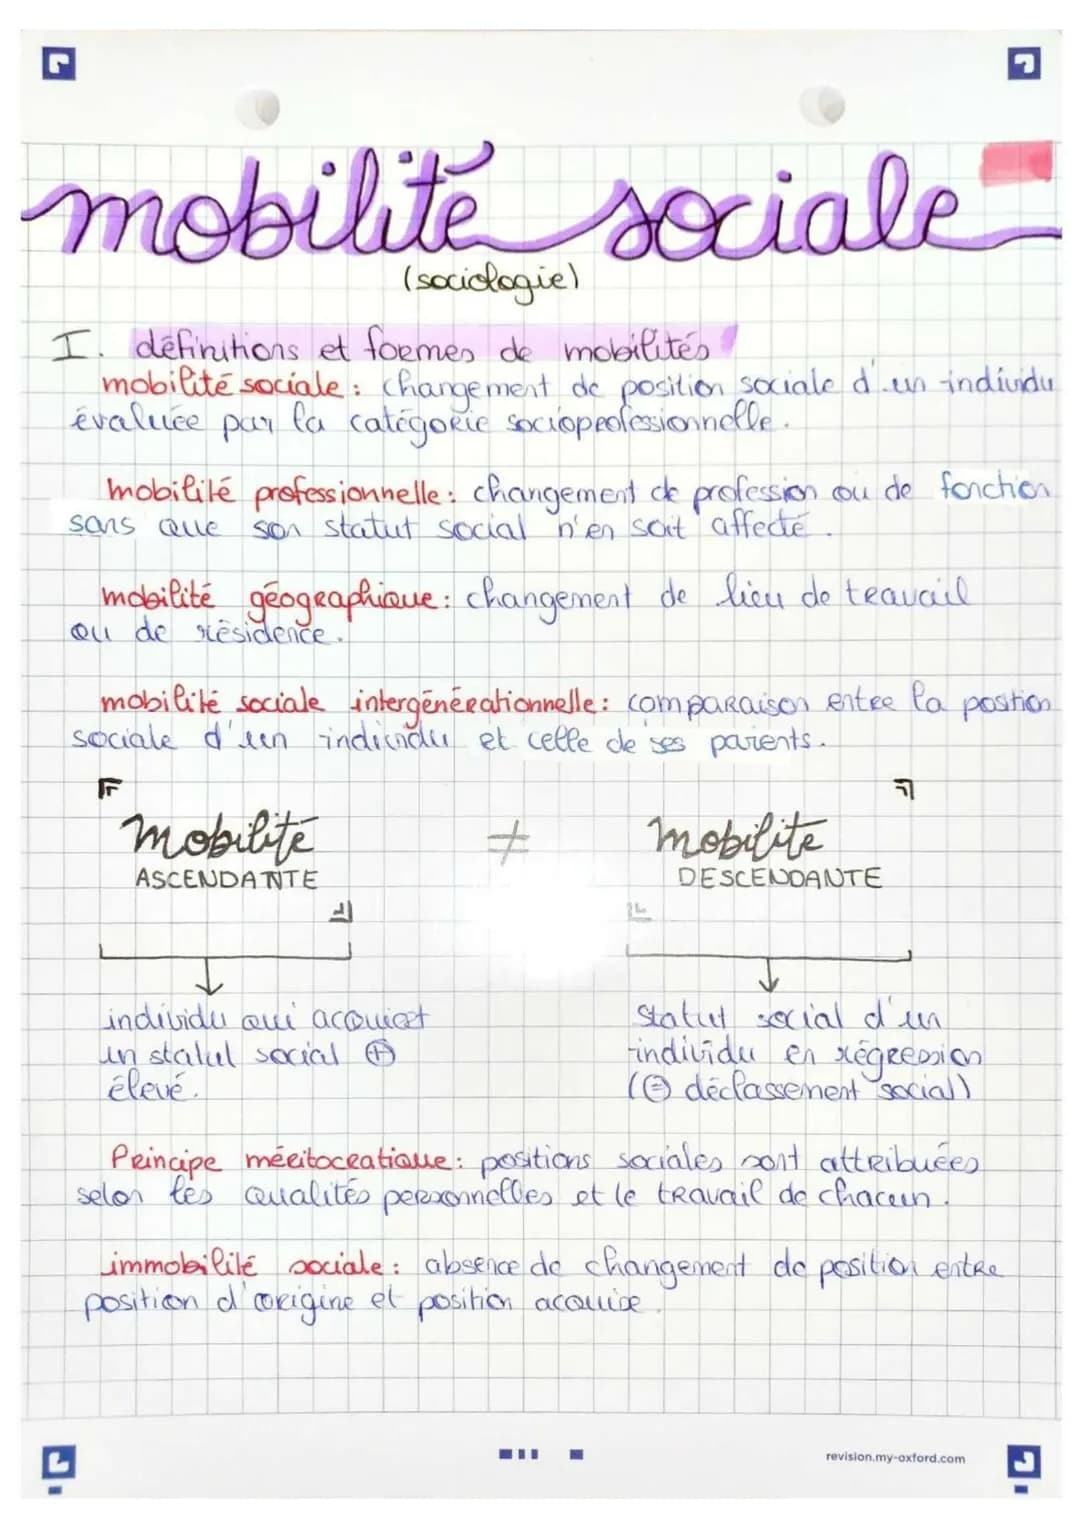 mobilité sociale
(sociologie)
I. définitions et formes de mobilités
mobilité sociale : changement de position sociale d'un individu
évaluée par la catégorie socioprofessionnelle.
mobilité professionnelle : changement de profession ou de fonction
sans que son statut social n'en soit affecté.
mobilité géographique : changement de lieu de travail
ou de résidence.
mobilité sociale intergénérationnelle : comparaison entre la position
sociale d'un individu et celle de ses parents.
mobilité ≠ mobilité
ASCENDANTE DESCENDANTE
individu qui acquiert
un statut social +
élevé.
statut social d'un
individu en régression
(= déclassement social)
Principe méritocratique : positions sociales sont attribuées
selon les qualités personnelles et le travail de chacun.
immobilité sociale : absence de changement de position entre
position d'origine et position acquise.
revision.my-oxford.com